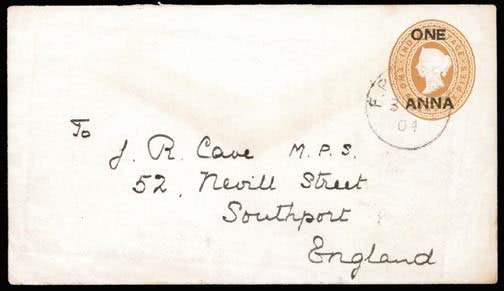 ONE
ANNA
F.P
3
04
To
J. R. Cave M.P.S.
52, Nevill Street
Southport
England